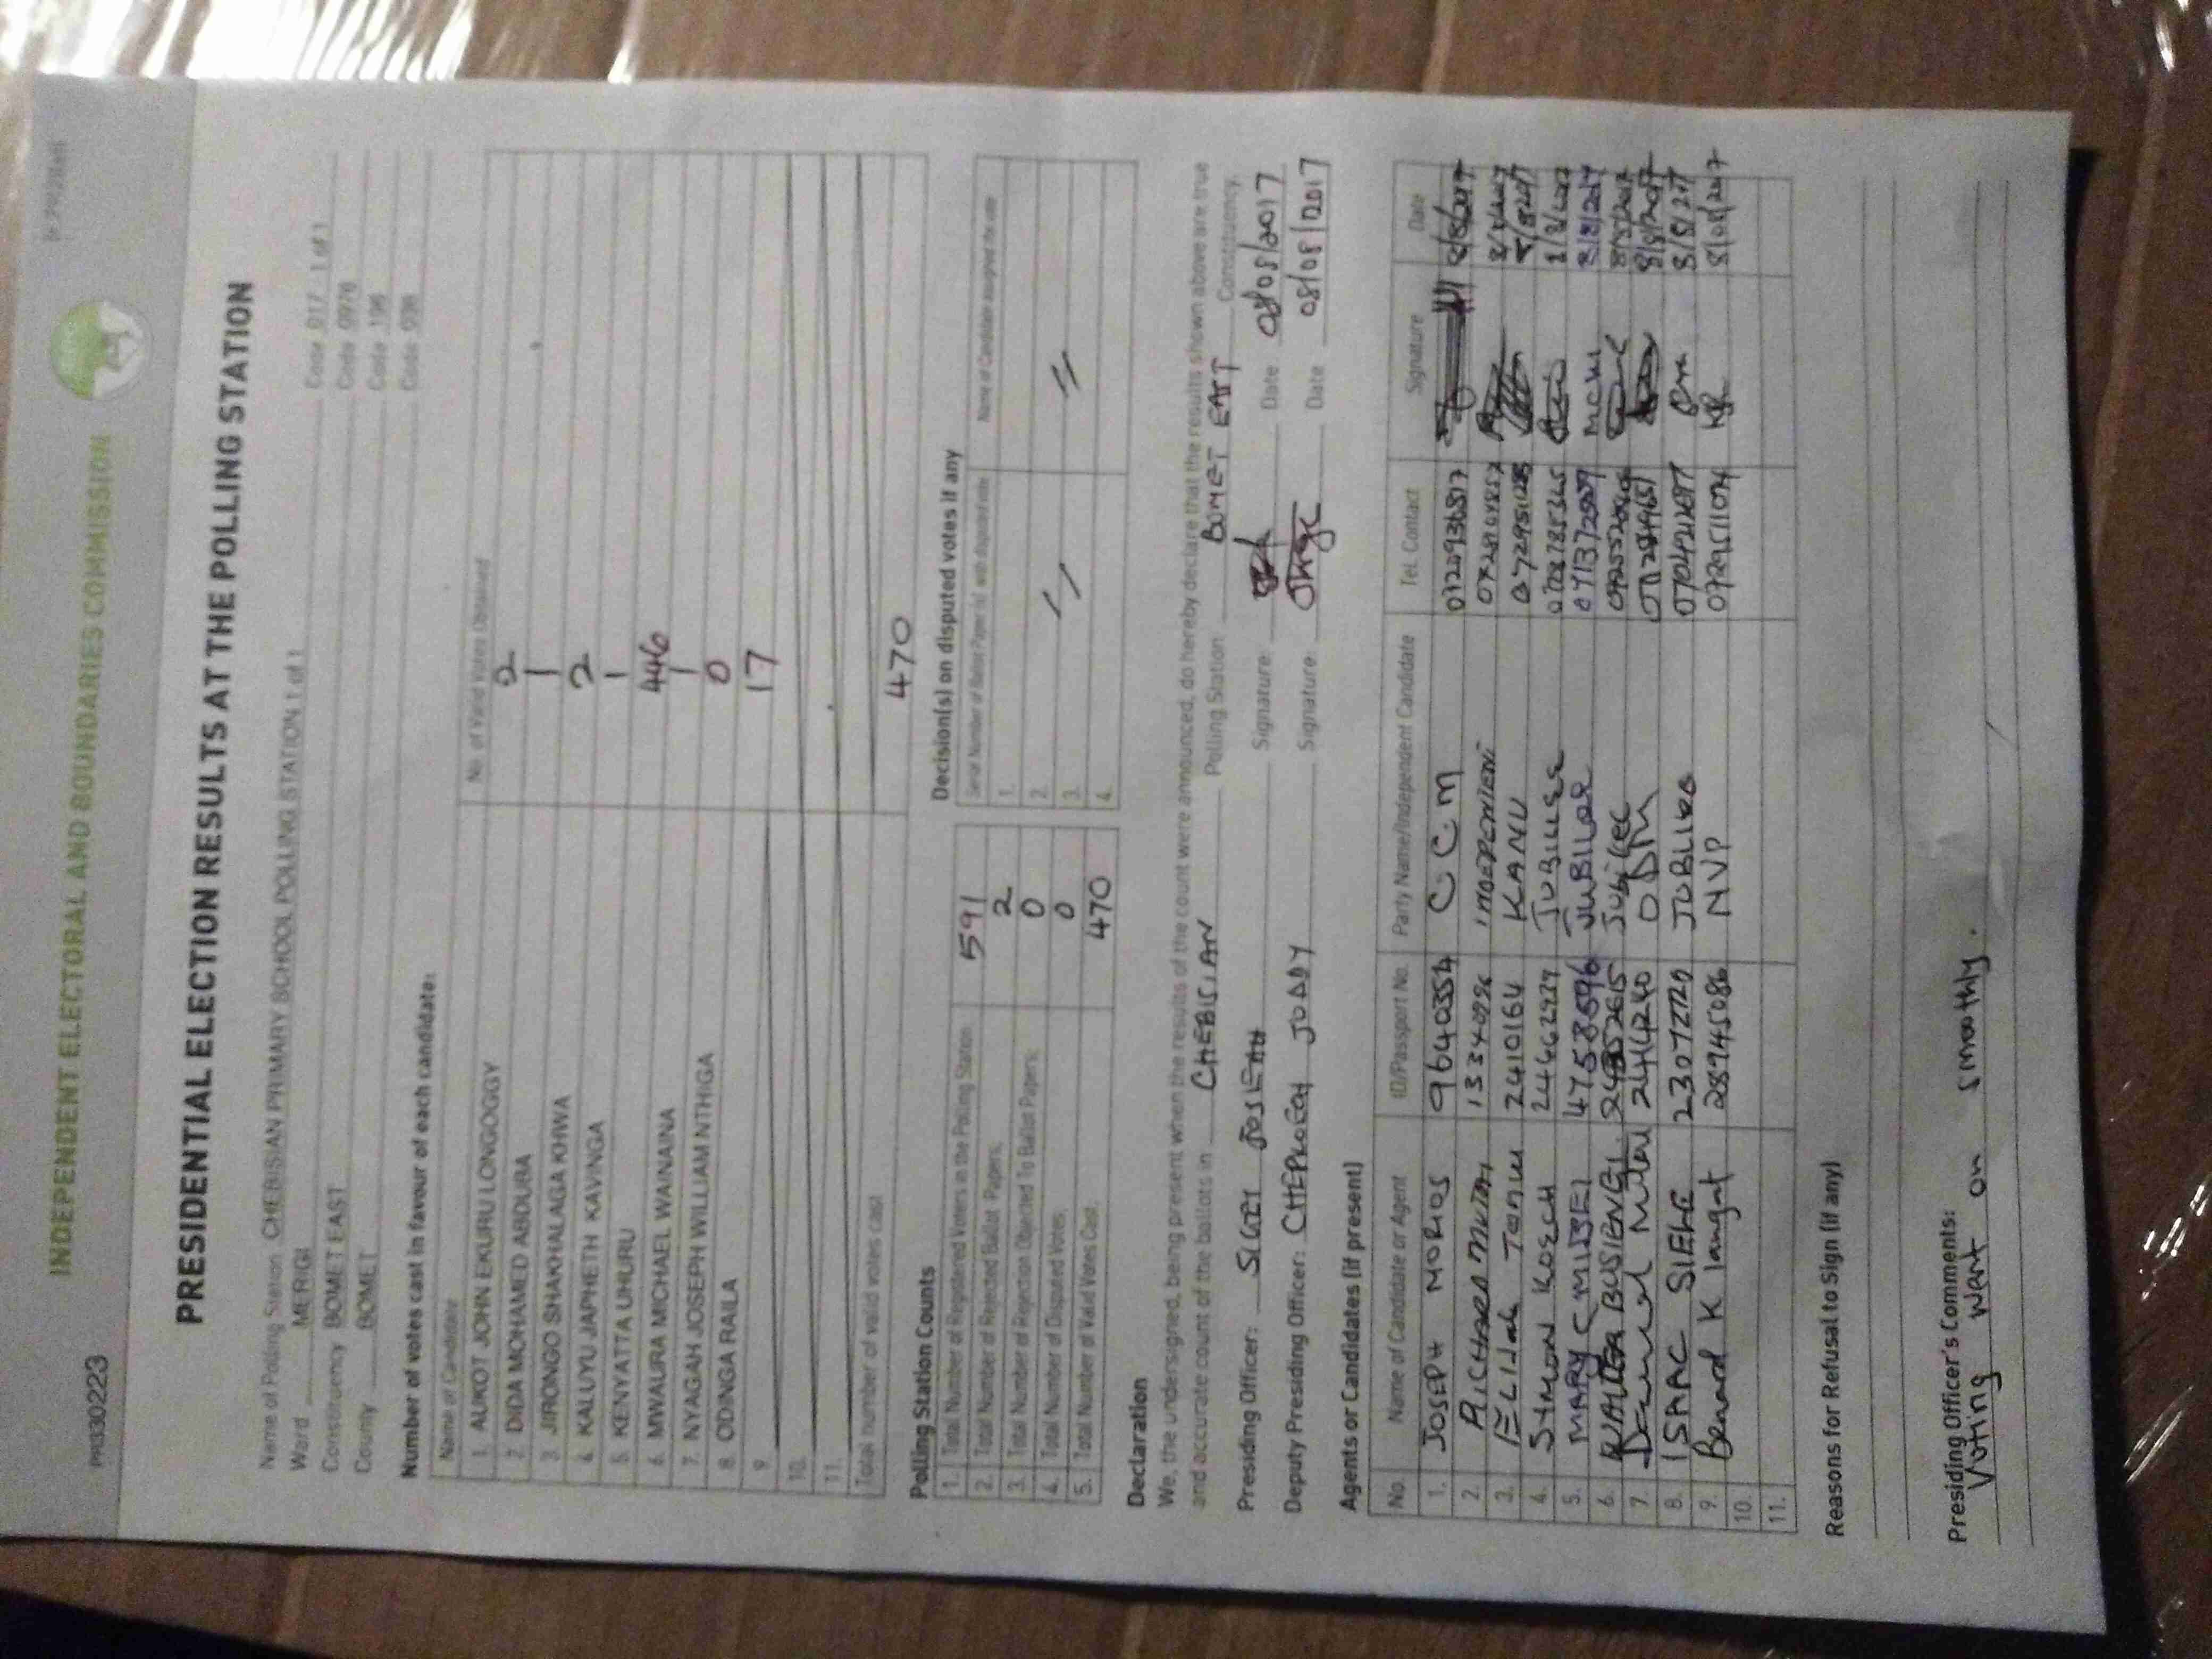 INDEPENDENT ELECTORAL AND BOUNDARIES COMMISSION
PR330223
PRESIDENTIAL ELECTION RESULTS AT THE POLLING STATION
Name of Polling Station CHEBISIAN PRIMARY SCHOOL POLLING STATION 1 of 1 Code 017 1 of 1
Ward MERIGI Code 0976
Constituency BOMET EAST Code 196
County BOMET Code 036
Number of votes cast in favour of each candidate:
Name of Candidate No. of Valid Votes Obtained
1. AUKOT JOHN EKURU LONGOGGY 2
2 DIDA MOHAMED ABDUBA 1
3 JIRONGO SHAKHALAGA KHWA 2
4 KALUYU JAPHETH KAVINGA 1
5. KENYATTA UHURU 446
6. MWAURA MICHAEL WAINAINA 1
7. NYAGAH JOSEPH WILLIAM NTHIGA 0
8. ODINGA RAILA 17
9.
10.
11.
Total number of valid votes cast 470
Polling Station Counts
1. Total Number of Registered Voters in the Polling Station 591
2. Total Number of Rejected Ballot Papers: 2
3. Total Number of Rejection Objected To Ballot Papers: 0
4. Total Number of Disputed Votes: 0
5. Total Number of Valid Votes Cast: 470
Decision(s) on disputed votes if any
Serial Number of Ballot Paper(s) with disputed vote Name of Candidate assigned the vote
1.
2. //
3. //
4.
Declaration
We, the undersigned, being present when the results of the count were announced, do hereby declare that the results shown above are true
and accurate count of the ballots in CHEBISIAN Polling Station BOMET EAST Constituency.
Presiding Officer: SIGEI JOSEAH Signature: Date 08/08/2017
Deputy Presiding Officer: CHEPKOECH JODDY Signature: Date 08/08/2017
Agents or Candidates (if present)
No. Name of Candidate or Agent ID/Passport No. Party Name/Independent Candidate Tel. Contact Signature Date
1. JOSEPH MORIOS 9640354 C.C.M
2. RICHARD 13340956
3. ELIJAH 24101164 KANU
4. KOECH 24662939 JUBILEE
5. MARY C 8/8/2017
6. BUSIENEI
7. 24414240 ODM
8. ISAAC SIELE 23072720 8/8/2017
9. Benard K langat 28945086 NVP 0729511074 8/08/2017
10.
11.
Reasons for Refusal to Sign (if any)
Presiding Officer's Comments:
Voting went on smoothly.